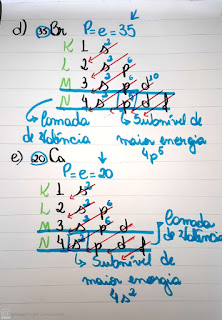 d) 35Br P=e=35
K 1 s²
L 2 s² p⁶
M 3 s² p⁶ d¹⁰
N 4 s² p⁵ d f
Camada de valência
Subnível de maior energia
4p⁵
e) 20Ca
P=e=20
K 1 s²
L 2 s² p⁶
M 3 s² p⁶ d
N 4 s² p d f
Camada de valência
Subnível de maior energia
4s²